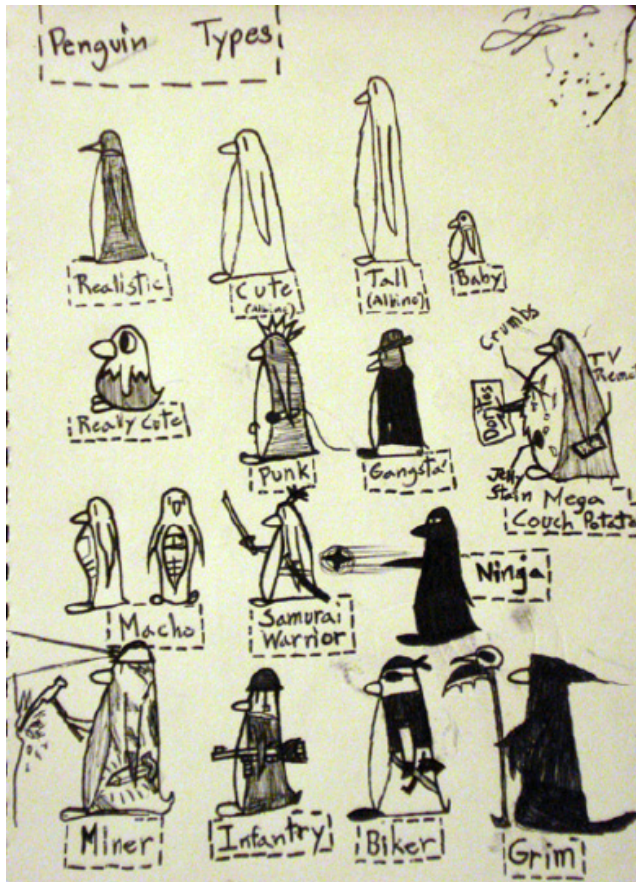 Penguin Types
Realistic
Cute
(Albino)
Tall
(Albino)
Baby
Really Cute
Punk
Gangsta'
Crumbs
TV
Remot
Doritos
Jelly
Stain
Mega
Couch Potato
Macho
Samurai
Warrior
Ninja
Miner
Infantry
Biker
Grim